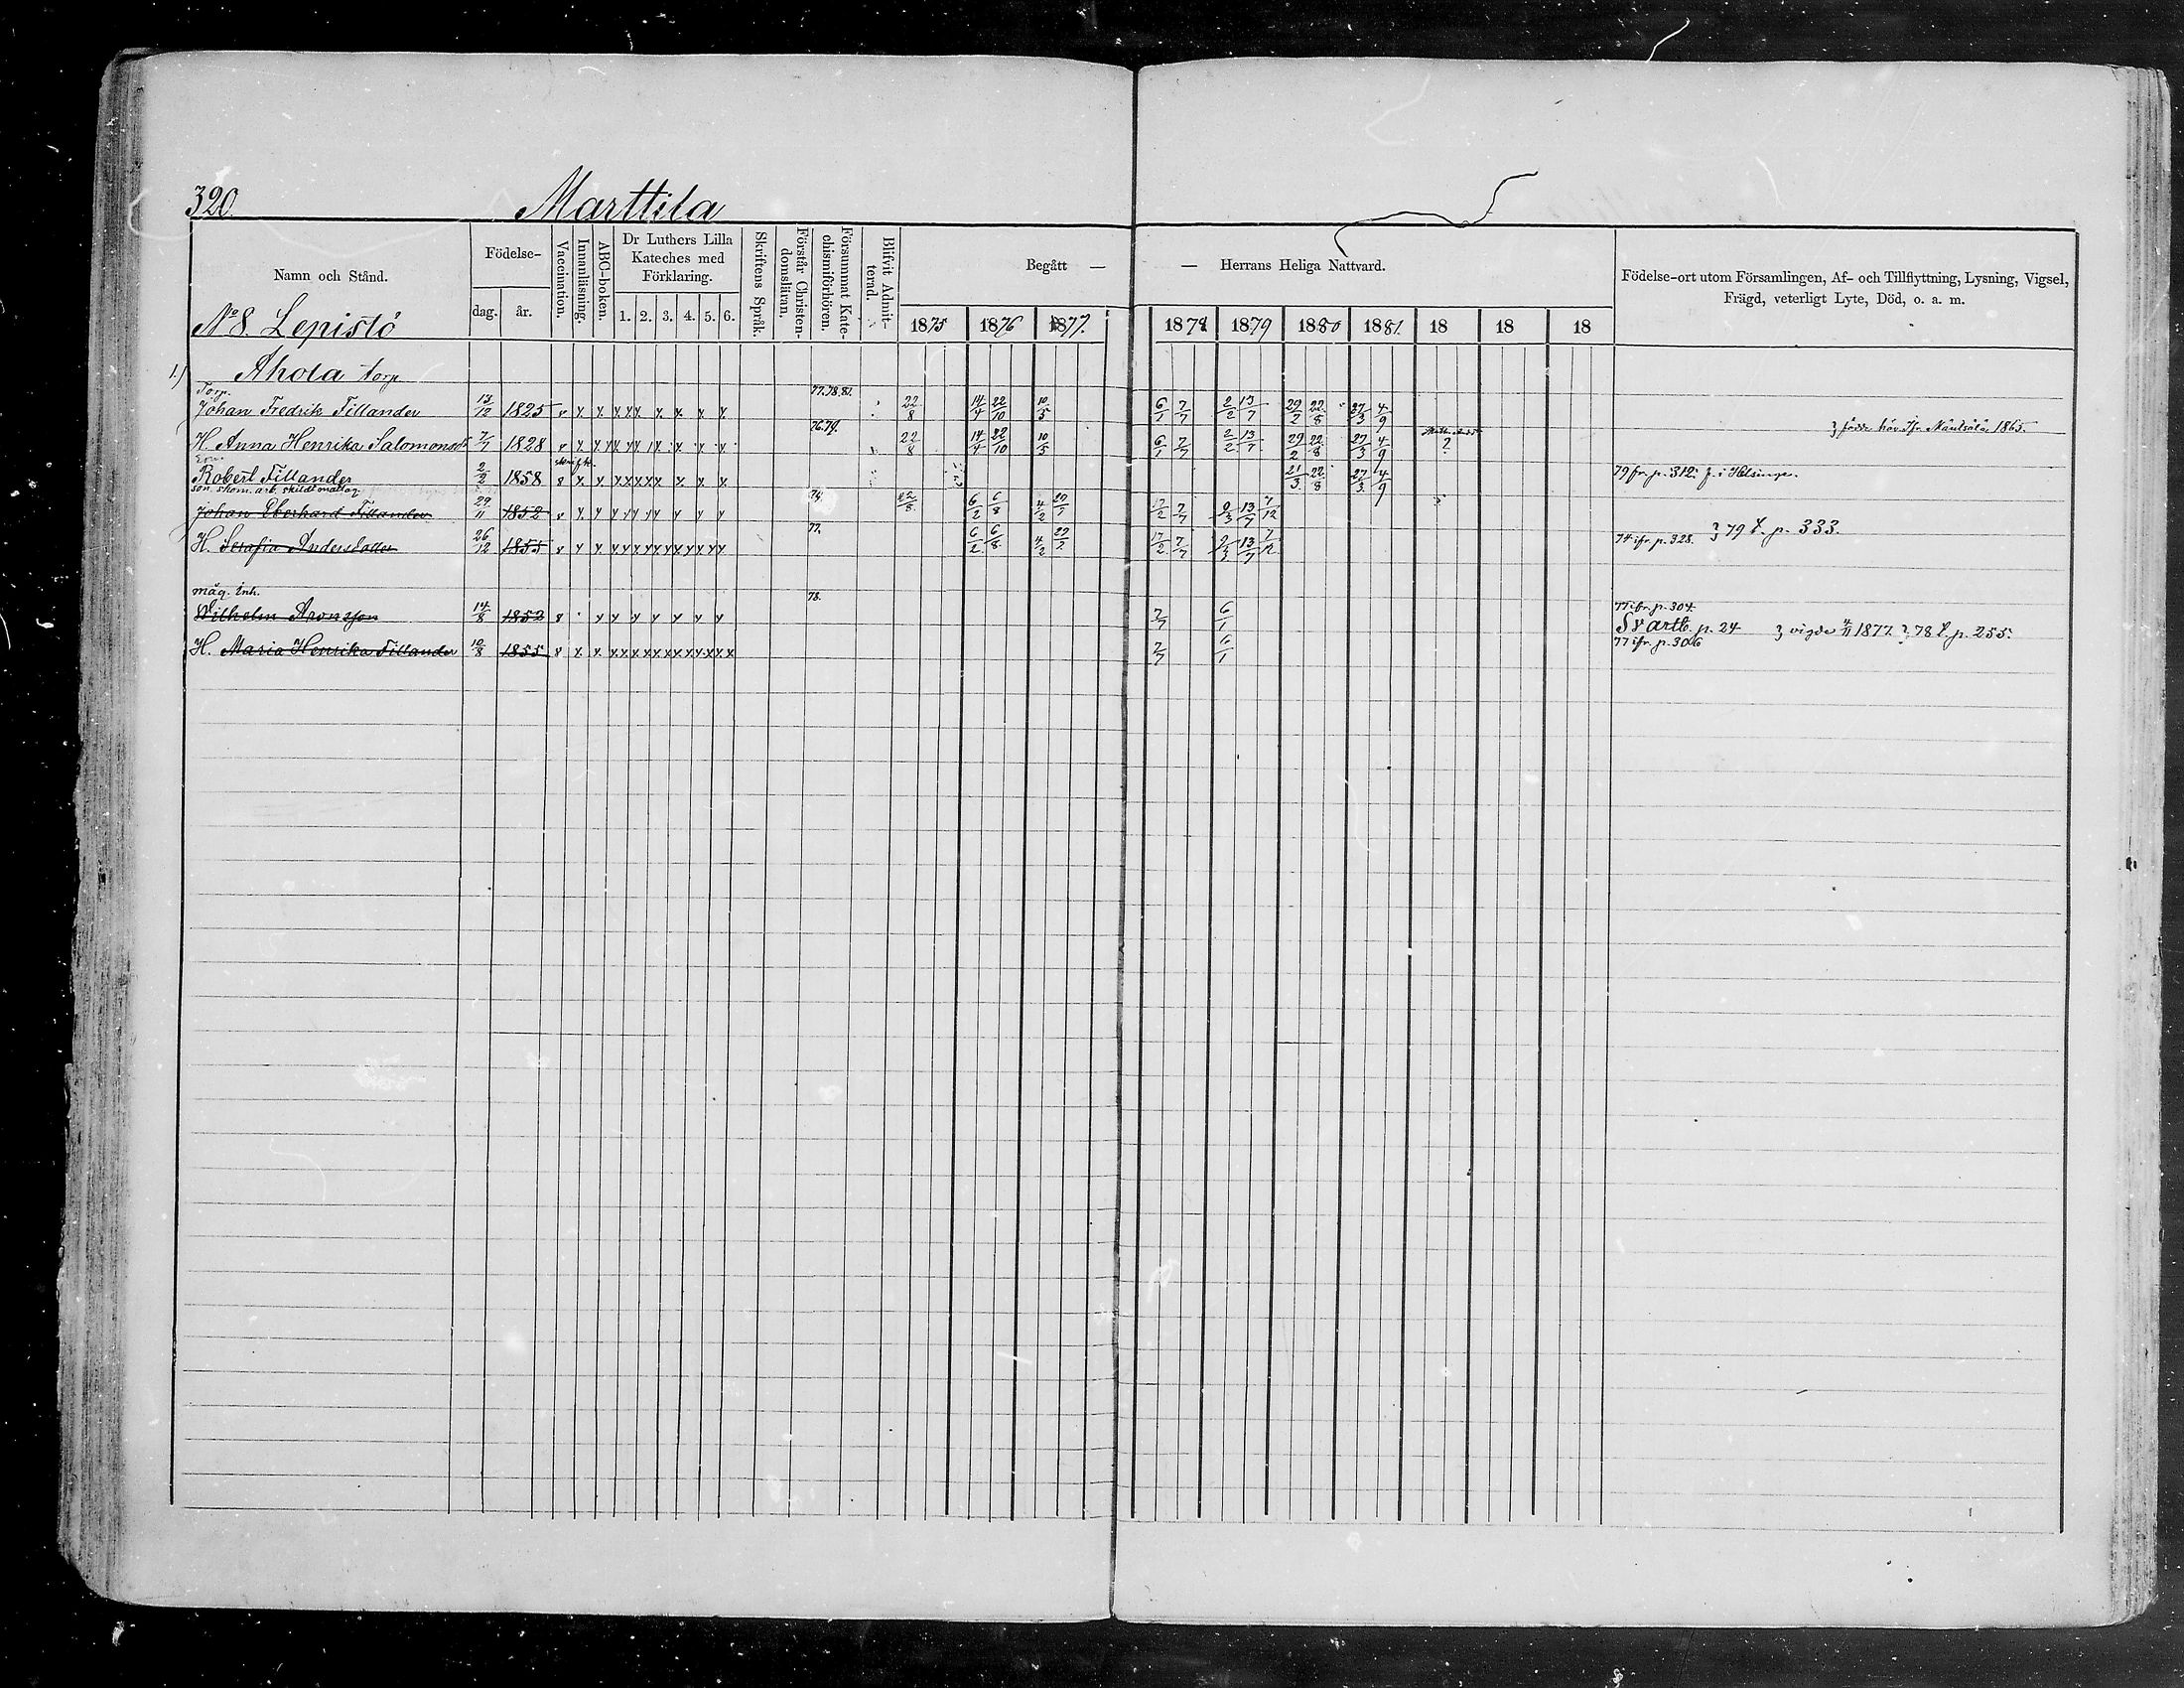 320
Marttila
Namn och Stånd.
Födelse-
dag.
år.
Vaccination.
Innanläsning.
ABC-boken.
Dr Luthers Lilla
Kateches med
Förklaring.
1. 2. 3. 4. 5. 6.
Skriftens Språk.
Förstår Christen-
domsläran.
Försummat Kate-
chismiförhören.
Blifvit Admit-
terad.
Begått —
— Herrans Heliga Nattvard.
1875 1876 1877. 1878 1879 1880 1881. 18 18 18
Födelse-ort utom Församlingen, Af- och Tillflyttning, Lysning, Vigsel,
Frägd, veterligt Lyte, Död, o. a. m.
No 8. Lepistö
1.) Ahola torp
Torp. 77.78.81.
Johan Fredrik Fillander 13/12 1825 22/8 14/4 22/10 10/5 6/1 7/7 2/2 13/7 29/2 22/8 27/3 4/9
76.79.
H. Anna Henrika Salomonsdr 7/7 1828 22/8 14/4 22/10 10/5 6/1 7/7 2/2 13/7 29/2 22/8 27/3 4/9 ?
Robert Fillander 2/2 1858 21/3 22/8 27/3 4/9 79 fr. p. 312. f. i Helsinge.
74.
Johan Eberhard Fillander 29/11 1852 22/8 6/2 6/8 17/2 7/7 9/3 13/7 7/12
77.
H. Serafia Andersdotter 26/12 1855 6/2 6/8 17/2 7/7 9/3 13/7 7/12 74 ifr. p. 328. 79 t. p. 333.
måg. Inh. 78.
Wilhelm Aronsson 14/8 1852 7/7 6/1 77 ifr. p. 304.
Svartb. p. 24 vigde 4/11 1877. 78 t. p. 255.
H. Maria Henrika Fillander 10/8 1855 7/7 6/1 77 ifr. p. 306